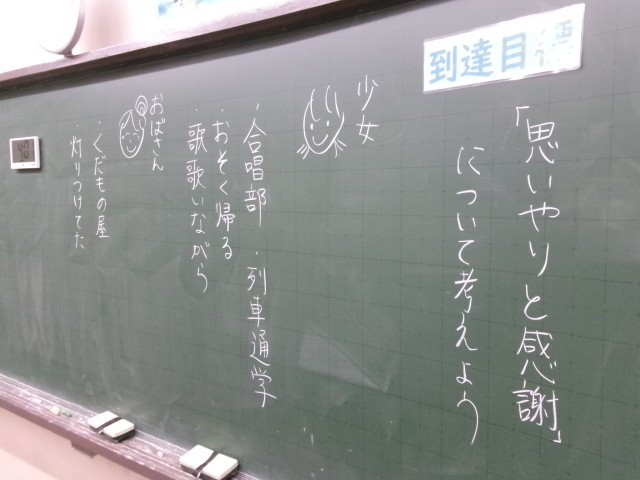 到達目標
「思いやりと感謝」
について考えよう
少女
・合唱部 ・列車通学
おそく帰る
・歌歌いながら
おばさん
・くだもの屋
・灯りつけてた